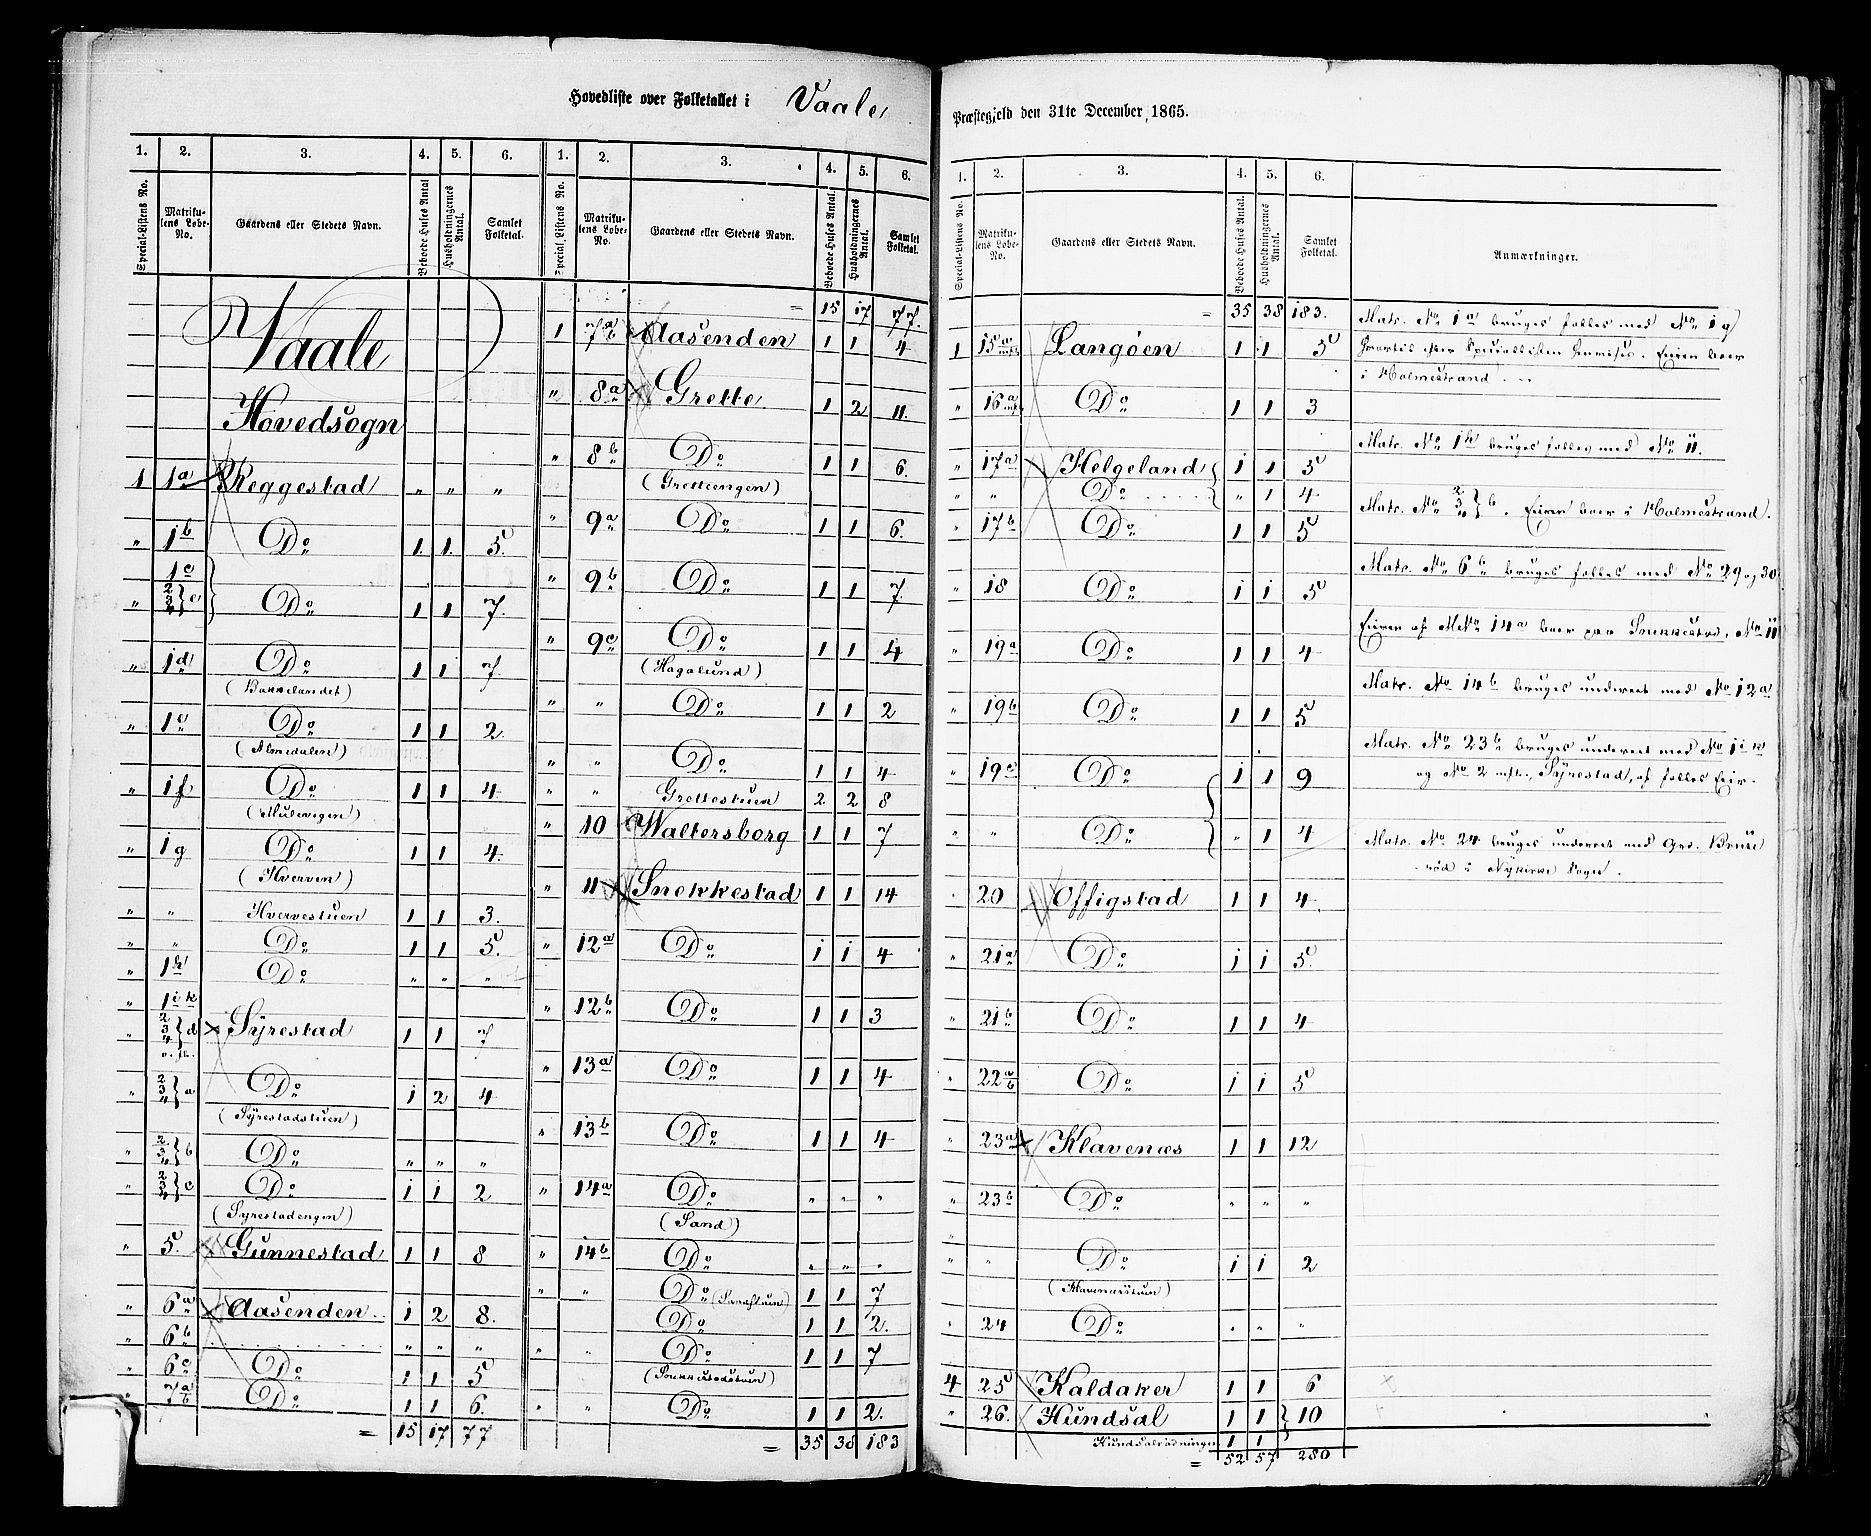 Hovedliste over Folketallet i Vaale
1. 2. 3. 4. 5. 6. 1. 2. 3. 4. 5. 6.
Special-Listens No. Matrikulens Løbe-No. Gaardens eller Stedets Navn. Beboede Huses Antal Husholdningernes Antal. Samlet Folketal. Special-Listens No. Matrikulens Løbe-No. Gaardens eller Stedets Navn. Beboede Huses Antal. Husholdningernes Antal. Samlet Folketal.
Vaale
Hovedsogn
1 1a Reggestad " " "
" 1b Do 1 1 5.
1c
" 2 3 4 } c Do 1 1 7.
" 1d Do 1 1 7.
(Bakkelandet)
" 1e Do 1 1 2.
(Almedalen)
" 1f Do 1 1 4
(Mulevegen)
" 1g Do 1 1 4.
(Hverven)
" " Hvervestuen 1 1 3.
" " Do 1 1 5.
" 1h Do " " "
" 1i k
" 2 3 4 } d Syrestad 1 1 7
" 2 3 4 } a Do 1 2 4
(Syrestadstuen)
" 2 3 4 } b Do " " "
" 2 3 4 } c Do 1 1 2
(Syrestadengen)
" 5. Gunnestad 1 1 8
" 6a Aasenden 1 2 8.
" 6b " " "
" 6c Do 1 1 5
" 7a b Do 1 1 6.
= 15 17 77
= 15 17 77.
1 7a b Aasenden 1 1 4
" 8a Grette 1 2 11.
" 8b Do 1 1 6.
(Gretteengen)
" 9a Do 1 1 6.
" 9b Do 1 1 7.
" 9c Do 1 1 4
(Hagalund)
" " Do 1 1 2
" " Do 1 1 4
" " Grettestuen 2 2 8
" 10 Waltersborg 1 1 7
" 11 Snekkestad 1 1 14
" 12a Do 1 1 4
" 12b Do 1 1 3
" 13a Do 1 1 4
" 13b Do 1 1 4
" 14a Do " " "
(Sand)
" 14b Do " " "
" " Do 1 1 7
Do 1 1 2.
" " Do 1 1 7
(Snekkestadstuen)
" " Do 1 1 2.
= 35 38 183
Præstegjeld den 31te December 1865.
1. 2. 3. 4. 5. 6.
Special-Listens No. Matrikulens Løbe-No. Gaardens eller Stedets Navn. Beboede Huses Antal. Husholdningernes Antal. Samlet Folketal. Anmærkninger.
= 35 38 183.
1 15a Langøen 1 1 5
" 16a Do 1 1 3
" 17a Helgeland 1 1 5
" " Do " 1 4
" 17b Do 1 1 5
" 18 Do 1 1 5
" 19a Do 1 1 4
" 19b Do 1 1 5
" 19c Do 1 1 9
" " Do " 1 4
" 20 Offigstad 1 1 4.
" 21a Do 1 1 5.
" 21b Do 1 1 4
" 22a b Do 1 1 5
" 23a Klavenæs 1 1 12
" 23b Do " " "
" " Do 1 1 2
(Klavenæsstuen)
" 24 Do " " "
4 25 Kaldaker 1 1 6
" 26. Hundsal 1 1 } 10
Hundsalrødningen 1 1
= 52 57 280
Matr. No 1a bruges fælles med No 1g
efter Speciallisten. Eieren boer
i Holmestrand.
Matr. No 1h bruges fælles med No 11.
Matr. No 2 3 4 } b. Eieren boer i Holmestrand.
Matr. No 6b bruges fælles med No 29 og 30
Eieren af MNo 14a boer paa Snekkestad, No 11
Matr. No 14b bruges underet med No 12a
Matr. No 23b bruges underet med No 1i k
og No 2 Syrestad, af fælles Eier.
Matr. No 24 bruges underet med Grd. Bruse
rød i Nykirke Sogn.